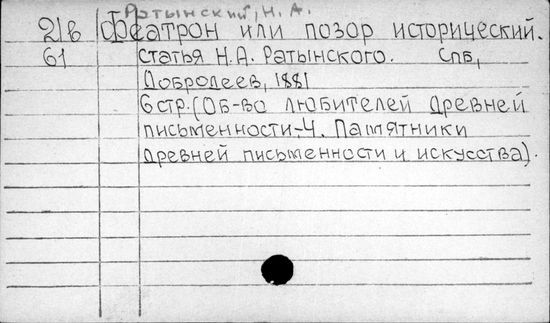 Ратынский, Н. А.
21в Феатрон или позор исторический.
61 статья Н.А. Ратынского. Спб,
Добродеев, 1881
6 стр. (Об-во любителей древней
письменности-Ч. Памятники
древней письменности и искусства).